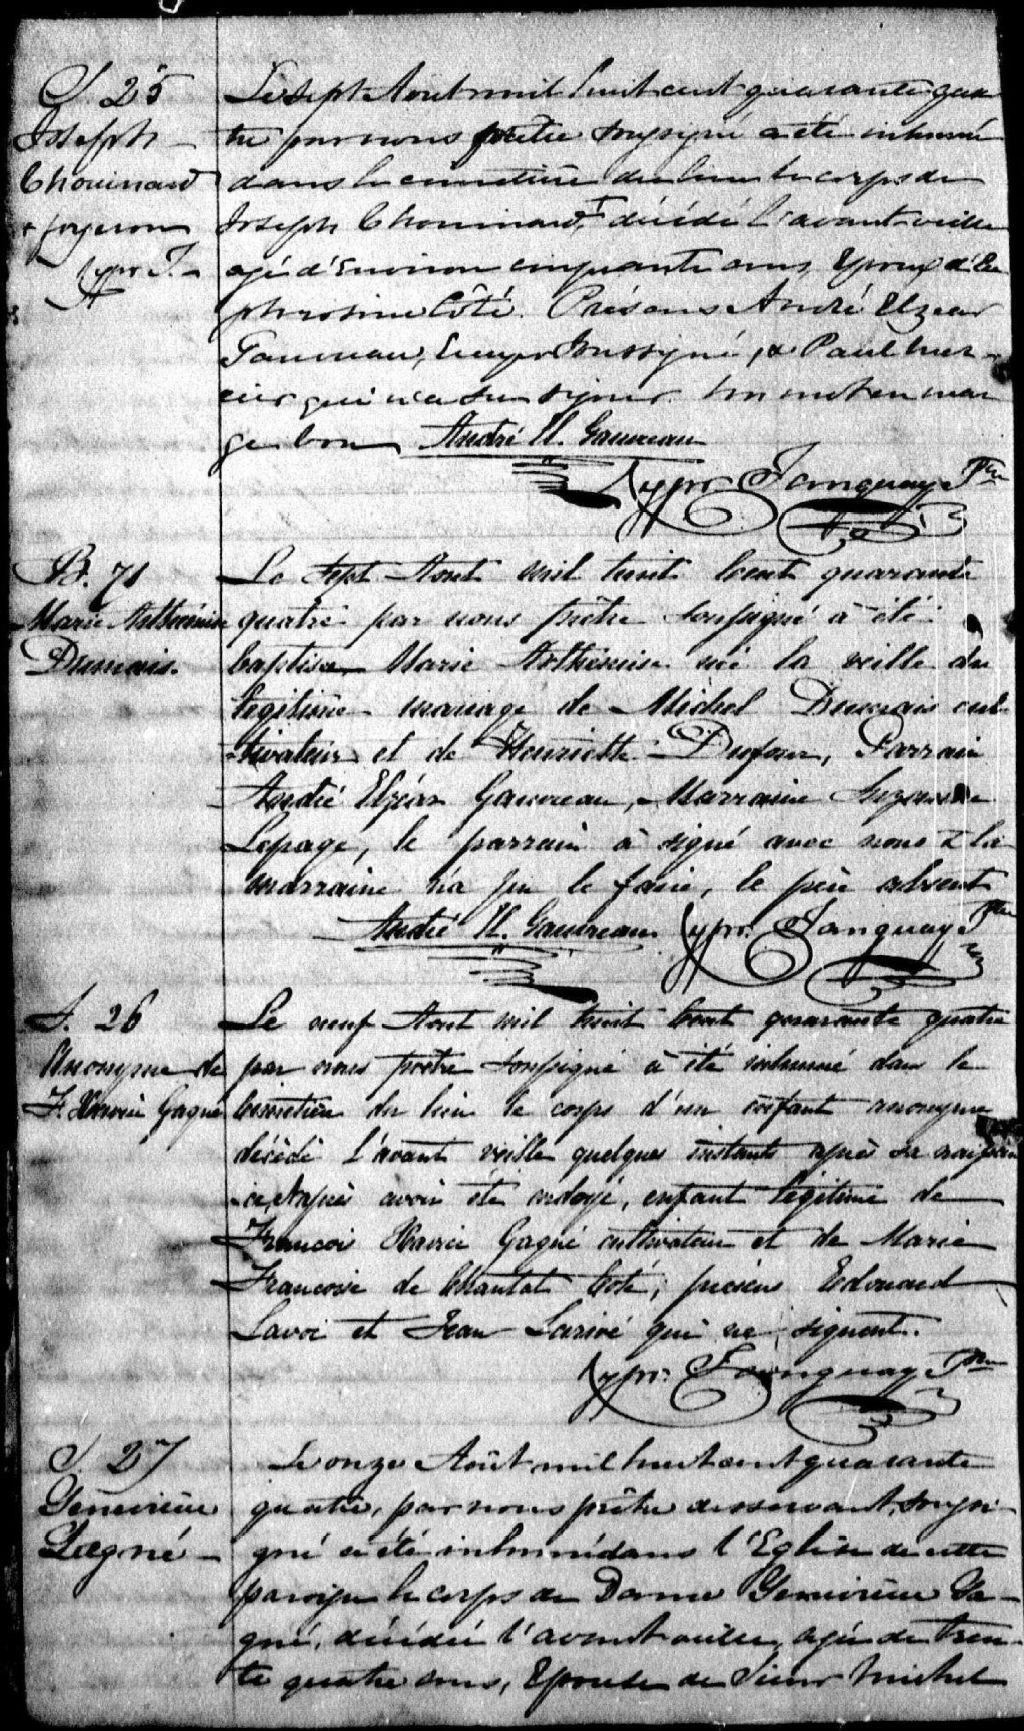 S. 25
Joseph
Chouinard
+ forgeron
Cypr T.
Le sept Aout mil huit cent quarante qua
tre par nous prêtre soussigné a été inhumé
dans le cimetière du lieu le corps de
Joseph Chouinard,+ décédé l'avant-veille
agé d'environ cinquante ans, Epoux d'Eu
phrosine Côté. Présens André Elzear
Gauvreau, Ecuyer soussigné, & Paul Mer-
cier qui n'a su signer. Un mot en mar
ge bon André E. Gauvreau
Cypr. Tanguay Ptre
B. 71
Marie Arthémise
Dumais.
Le sept Aout mil huit Cent quarante
quatre par nous prêtre soussigné à été
baptisée Marie Arthémise née la veille du
legitime mariage de Michel Dumais cul-
tivateur et de Henriette Dufour, Parrain
André Elzéar Gauvreau, Marraine Suzanne
Lepage, le parrain à signé avec nous & la
marraine n'a pu le faire, le père absent
André E. Gauvreau Cypr. Tanguay Ptre
S. 26
Anonyme de
F. Xavier Gagné
Le neuf Aout mil huit Cent quarante quatre
par nous prêtre soussigné à été inhumé dans le
Cimetière du lieu le corps d'un enfant anonyme
décédé l'avant veille quelques instants après sa naissan
ce, Après avoir été ondoyé, enfant legitime de
Francois Xavier Gagné cultivateur et de Marie
Francoise de Chantal Coté; présens Edouard
Lavoi et Jean Larivé qui ne signent.
Cypr. Tanguay Ptre
S. 27
Genevieve
Gagné
Le onze Août mil huit cent quarante
quatre, par nous prêtre desservant, soussi
gné a été inhumé dans l'Eglise de cette
paroisse le corps de Dame Genevieve Ga-
gné, décédée l'avant veille, agée de tren-
te quatre ans, Epouse de Sieur Michel